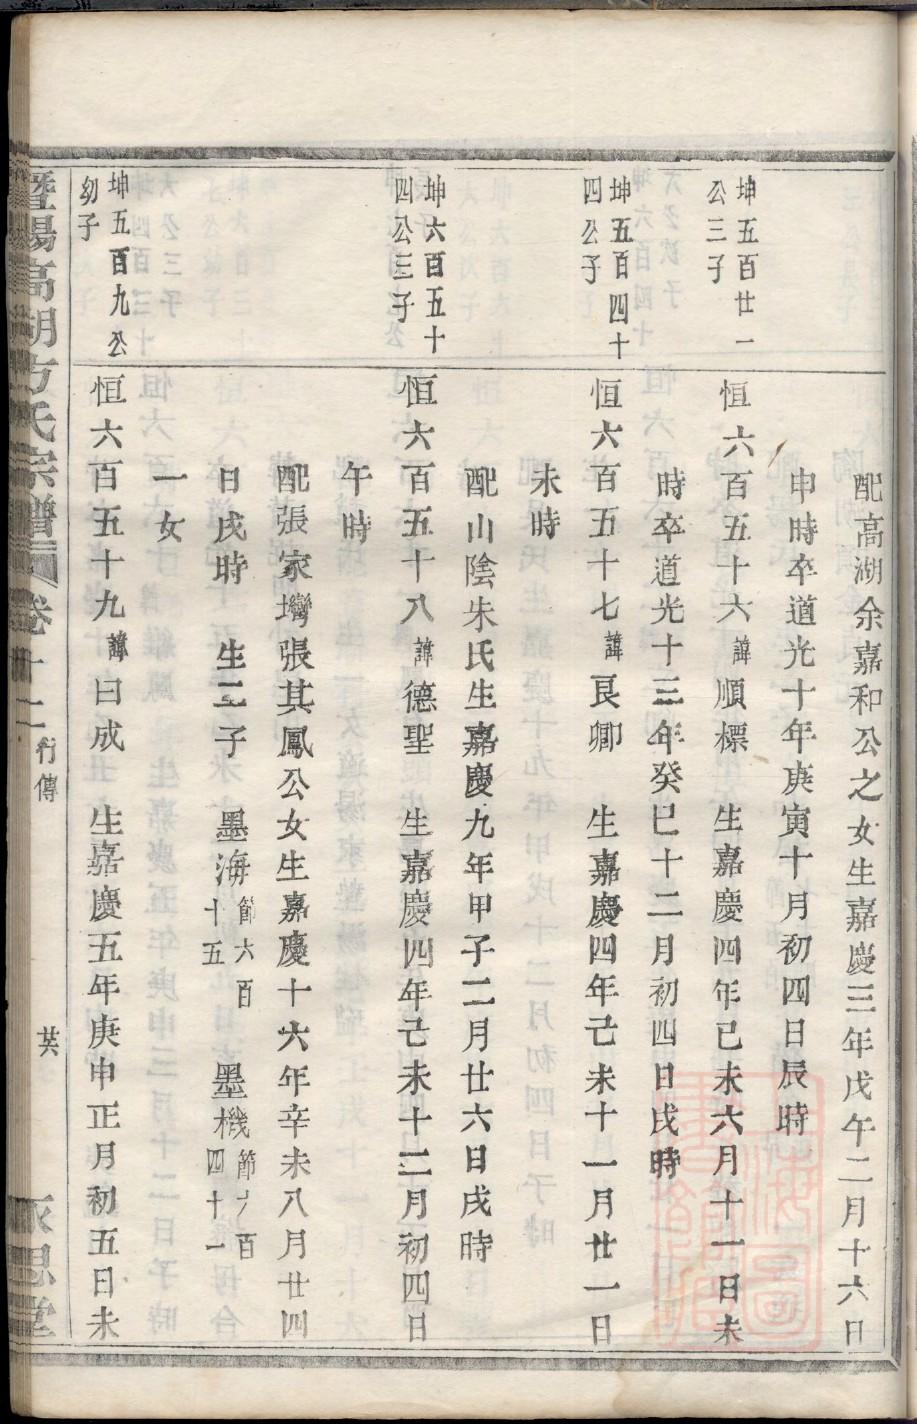 配高湖余嘉和公之女生嘉慶三年戊午二月十六日
申時卒道光十年庚寅十月初四日辰時
坤五百廿一
公三子
恒六百五十六諱順標 生嘉慶四年已未六月十一日未
時卒道光十三年癸巳十二月初四日戌時
坤五百四十
四公子
恒六百五十七諱艮卿 生嘉慶四年己未十一月廿一日
未時
配山陰朱氏生嘉慶九年甲子二月廿六日戌時
坤六百五十
四公三子
恒六百五十八諱德聖 生嘉慶四年己未十二月初四日
午時
配張家塆張其鳳公女生嘉慶十六年辛未八月廿四
日戌時 生二子 墨海節六百十五 墨機節六百四十一
一女
坤五百九公
幼子
恒六百五十九諱曰成 生嘉慶五年庚申正月初五日未
暨陽高湖方氏宗譜 卷十二 行傳
永思堂